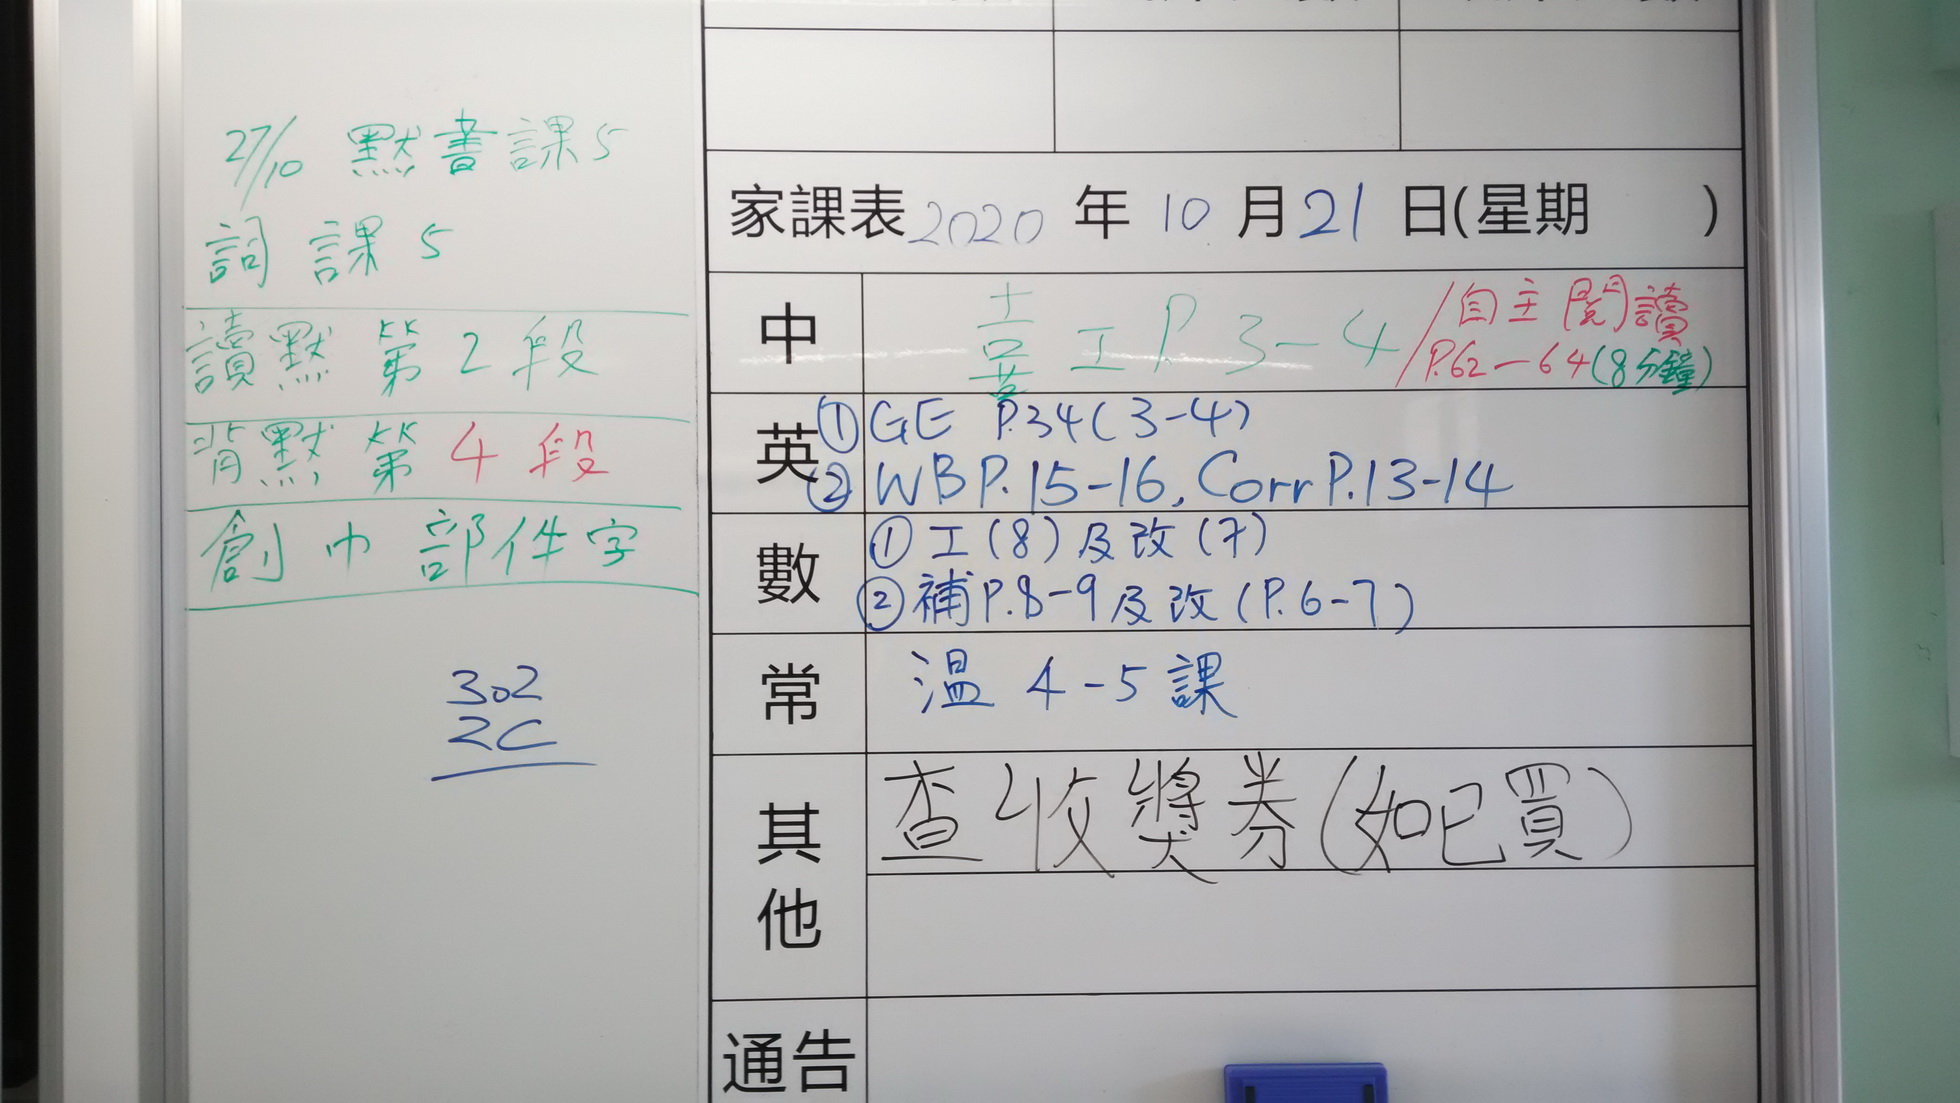 27/10 默書課5
詞 課 5
讀默 第 2 段
背默 第 4 段
創 巾 部件字
302
2C
家課表 2020 年 10 月 21 日(星期 )
中 喜 工 P 3-4 / 自主閱讀
P.62-64(8分鐘)
英 ① GE P.34(3-4)
② WB P.15-16, Corr P.13-14
數 ① 工(8)及改(7)
② 補P.8-9及改(P.6-7)
常 溫 4-5課
其他 查收獎券(如已買)
通告